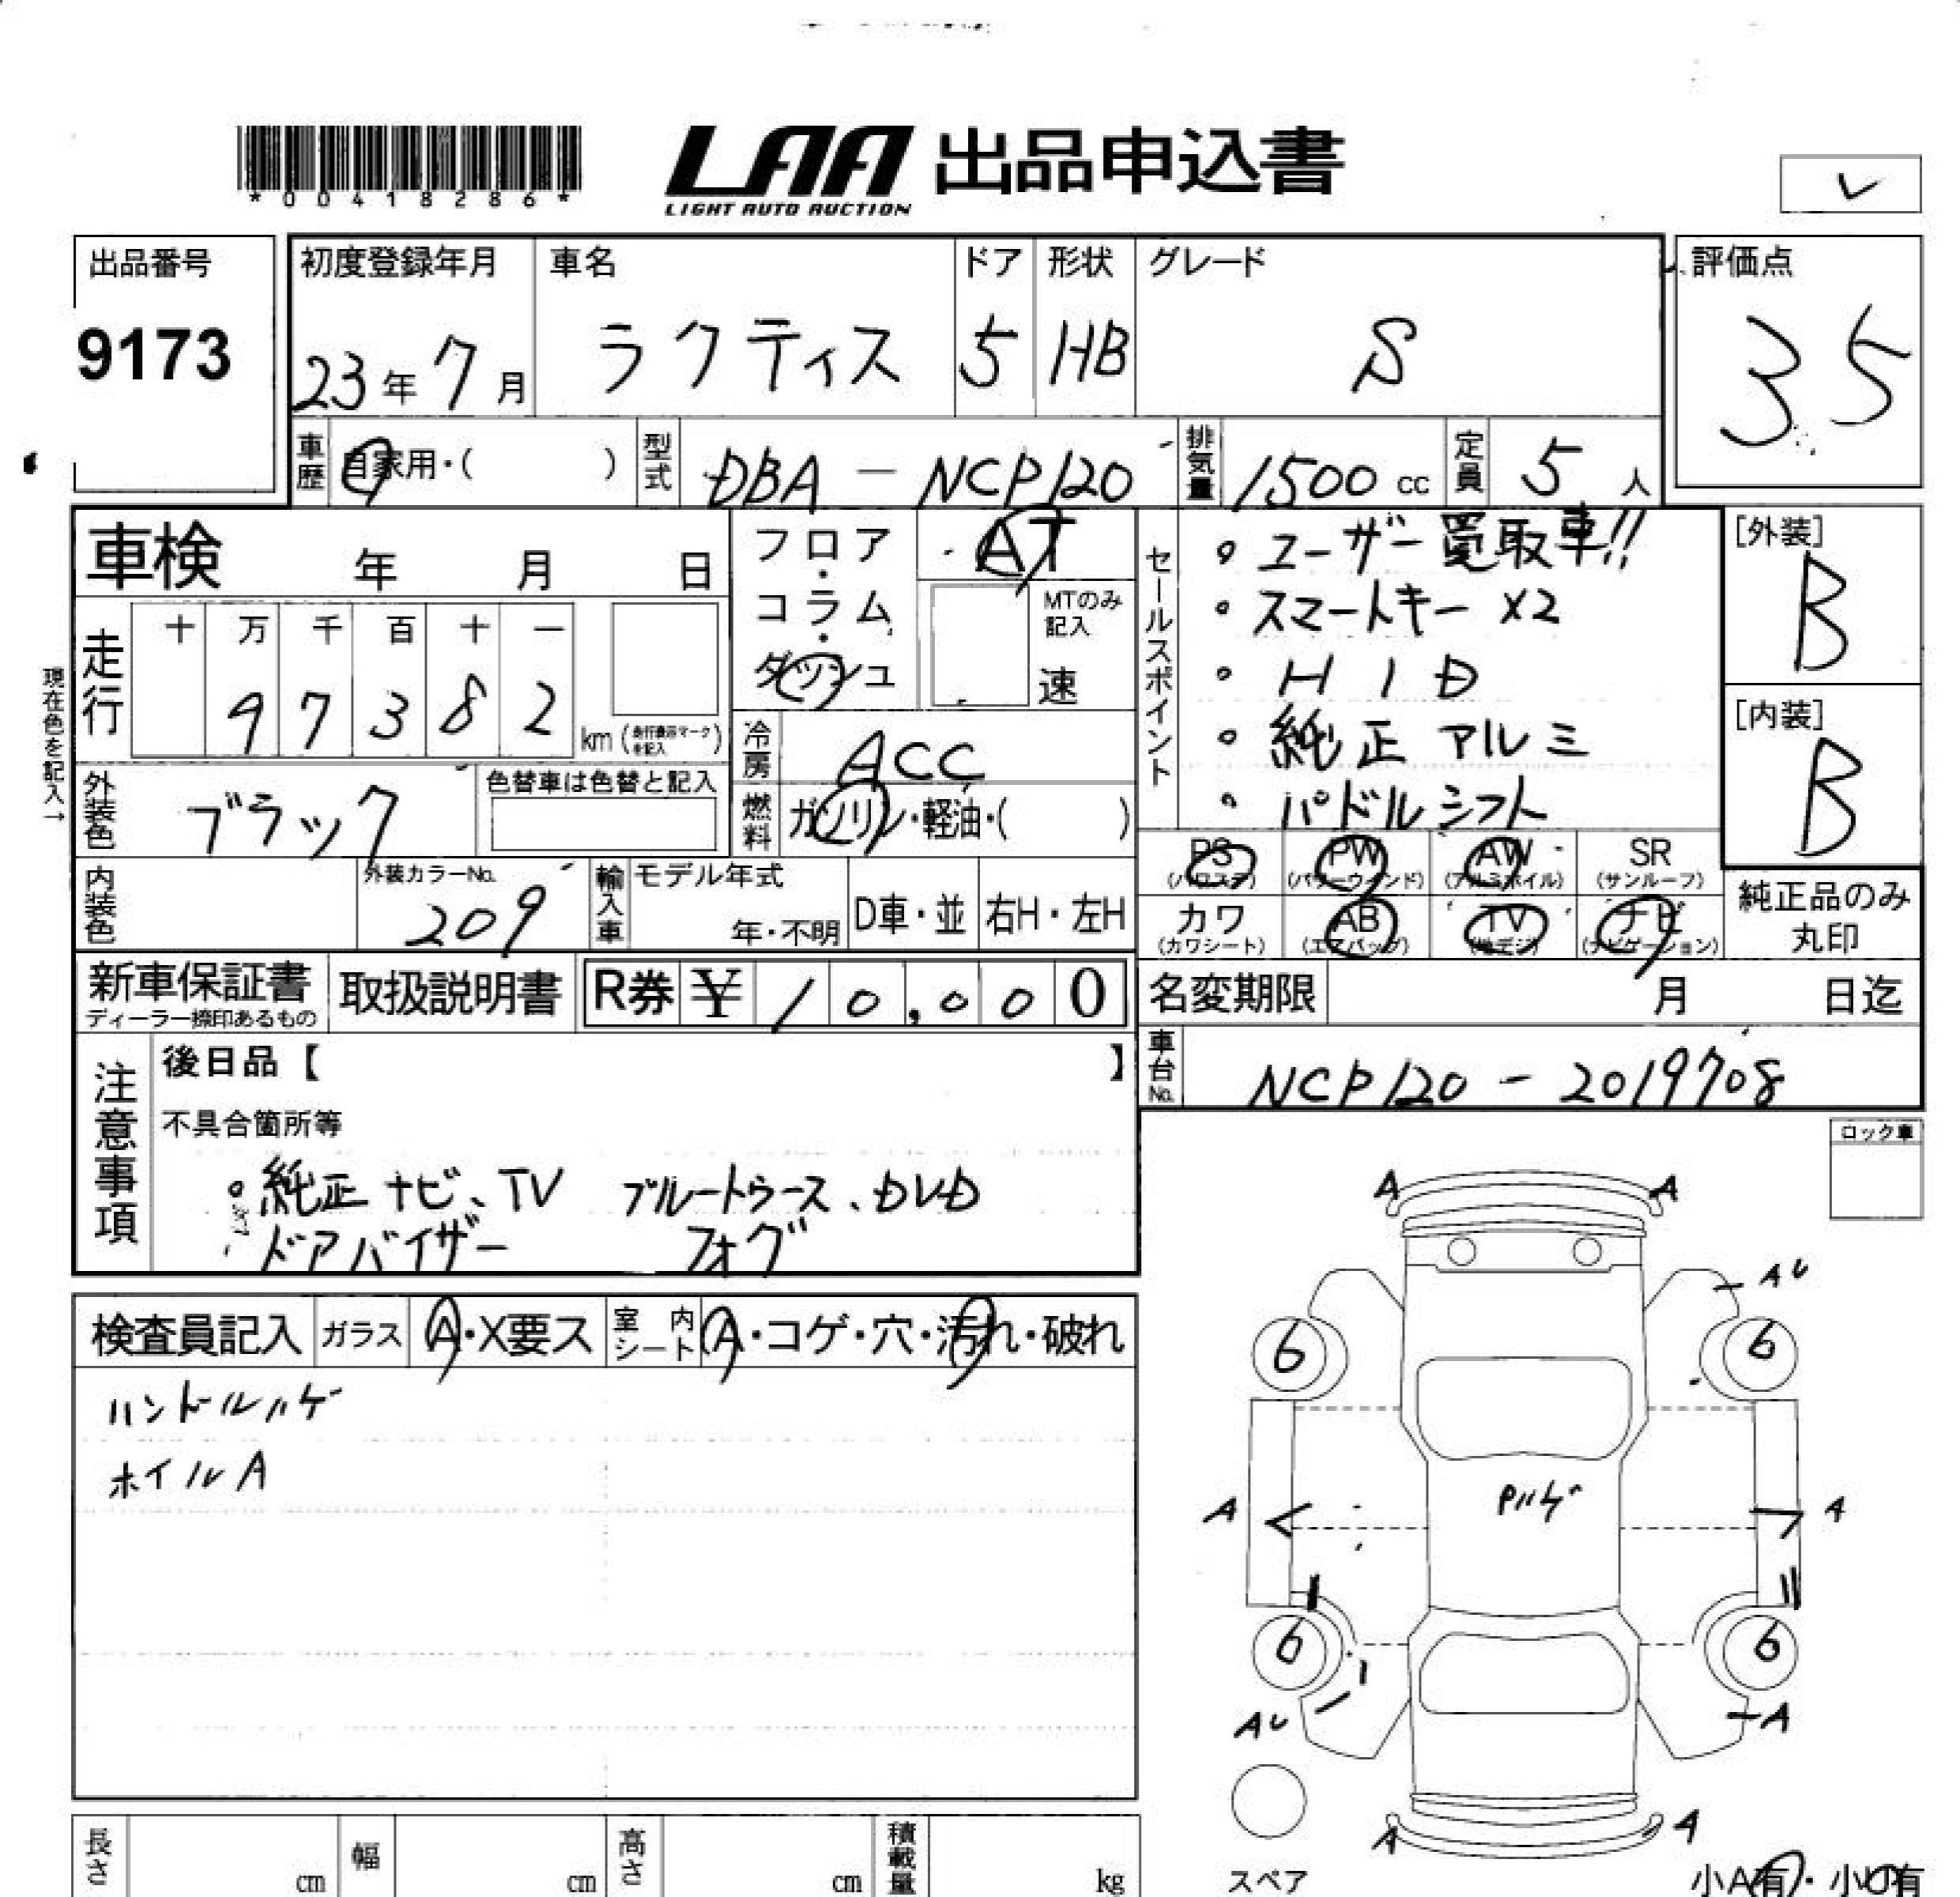 *00418286*
LAA 出品申込書
LIGHT AUTO AUCTION
出品番号
9173
初度登録年月
23年7月
車名
ラクティス
ドア
5
形状
HB
グレード
S
評価点
3.5
車歴 自家用・( )
型式 DBA - NCP120
排気量 1500 cc
定員 5 人
車検 年 月 日
フロア・コラム・ダッシュ
AT
MTのみ記入
速
現在色を記入→
走行
十 万 千 百 十 一
9 7 3 8 2
km
冷房 ACC
燃料 ガソリン・軽油・( )
外装色 ブラック
色替車は色替と記入
内装色
外装カラーNo.
209
輸入車
モデル年式
年・不明
D車・並
右H・左H
セールスポイント
・ユーザー買取車!!
・スマートキー ×2
・HID
・純正アルミ
・パドルシフト
[外装]
B
[内装]
B
PS (パワステ)
PW (パワーウィンド)
AW (アルミホイル)
SR (サンルーフ)
カワ (カワシート)
AB (エアバッグ)
TV (地デジ)
ナビ (ナビゲーション)
純正品のみ丸印
新車保証書
ディーラー捺印あるもの
取扱説明書
R券 ¥10,000
名変期限 月 日迄
車台No. NCP120 - 2019708
注意事項
後日品【 】
不具合箇所等
・純正ナビ、TV ブルートゥース、DVD
ドアバイザー フォグ
ロック車
検査員記入
ガラス A・X要ス
室内シート A・コゲ・穴・汚れ・破れ
ハンドルハゲ
ホイルA
A A
AU
6 6
A A
Pハゲ
6 6
AU A
A A
スペア
小A有・小U有
長さ cm
幅 cm
高さ cm
積載量 kg